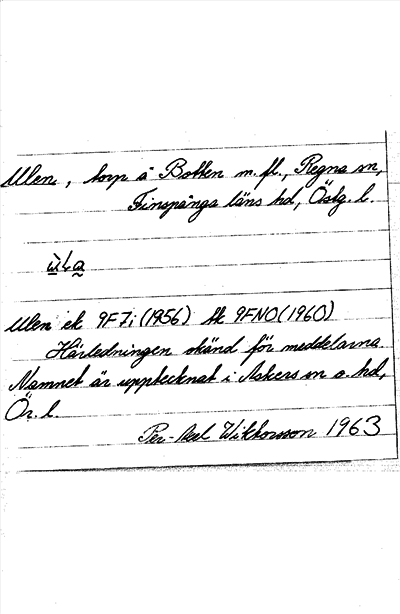 Ulen, torp å Botten m.fl., Regna sn,
Finspånga läns hd, Östg. l.
Ulen ek 9F7i (1956) tk 9FNO (1960)
Härledningen okänd för meddelarna.
Namnet är upptecknat i Askers sn o. hd,
Ör. l.
Per-Axel Wiktorsson 1963